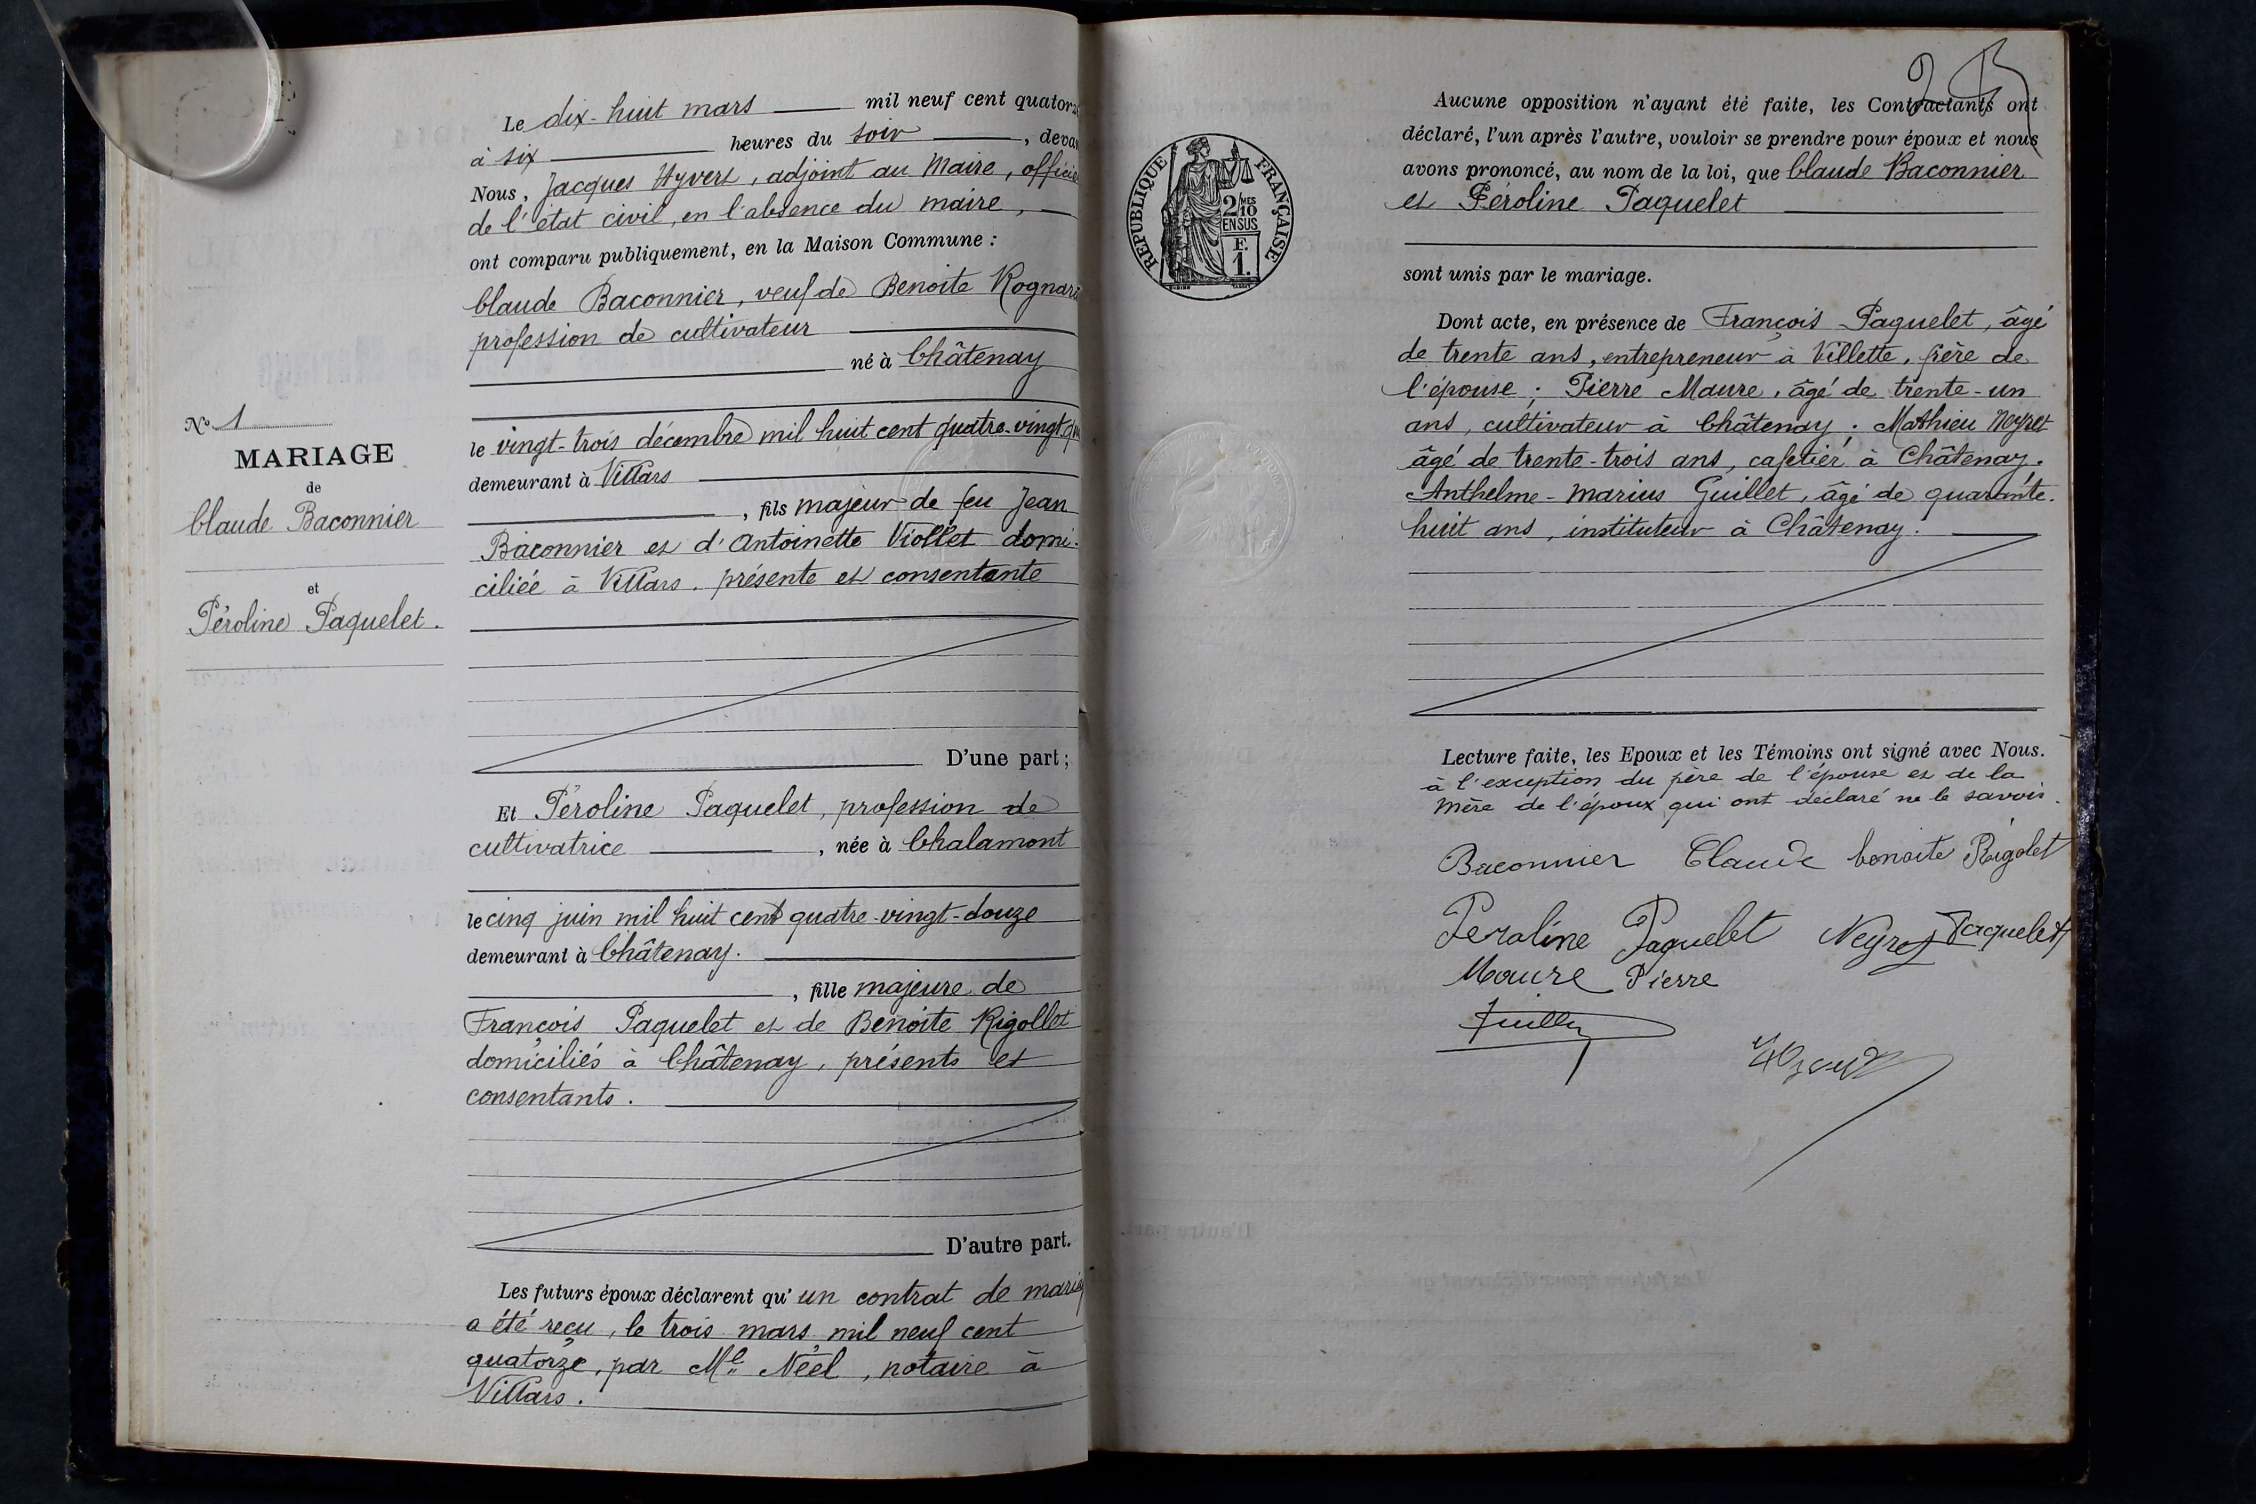 Le dix-huit mars mil neuf cent quatorz
à six heures du soir, deva
Nous, Jacques Hyvert, adjoint au Maire, officie
de l'état civil, en l'absence du maire,
ont comparu publiquement, en la Maison Commune :
Claude Baconnier, veuf de Benoite Rognard
profession de cultivateur
né à Châtenay
le vingt-trois décembre mil huit cent quatre-vingt-
demeurant à Villars
, fils majeur de feu Jean
Baconnier et d'Antoinette Viollet domi-
ciliée à Villars, présente et consentante
D'une part ;
Et Péroline Paquelet, profession de
cultivatrice, née à Chalamont
le cinq juin mil huit cent quatre-vingt-douze
demeurant à Châtenay.
, fille majeure de
François Paquelet et de Benoite Rigollet
domiciliés à Châtenay, présents et
consentants.
D'autre part.
Les futurs époux déclarent qu'un contrat de mariag
a été reçu, le trois mars mil neuf cent
quatorze, par Me Néel, notaire à
Villars.
No 1
MARIAGE
de
Claude Baconnier
et
Péroline Paquelet.
2
RÉPUBLIQUE FRANÇAISE
2 MES
10
EN SUS
F.
1.
Aucune opposition n'ayant été faite, les Contractants ont
déclaré, l'un après l'autre, vouloir se prendre pour époux et nous
avons prononcé, au nom de la loi, que Claude Baconnier
et Péroline Paquelet
sont unis par le mariage.
Dont acte, en présence de François Paquelet, âgé
de trente ans, entrepreneur à Villette, frère de
l'épouse ; Pierre Maure, âgé de trente-un
ans, cultivateur à Châtenay ; Mathieu Neyret
âgé de trente-trois ans, cafetier à Châtenay.
Anthelme-Marius Guillet, âgé de quarante-
huit ans, instituteur à Châtenay.
Lecture faite, les Epoux et les Témoins ont signé avec Nous.
à l'exception du père de l'épouse et de la
mère de l'époux qui ont déclaré ne le savoir.
Baconnier Claude benoite Rigolet
Peroline Paquelet Neyret Paquelet
Maure Pierre